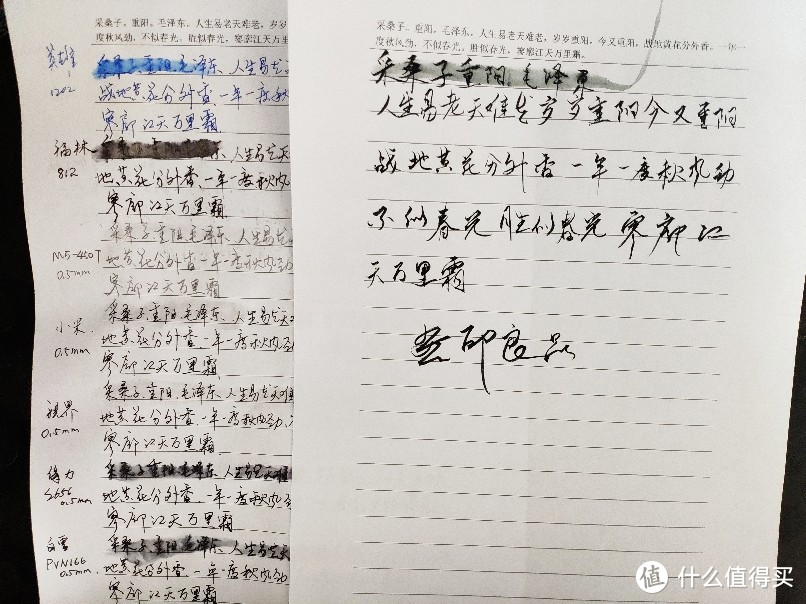 采桑子。重阳。毛泽东。人生易老天难老，岁岁
度秋风劲，不似春光。胜似春光，寥廓江天万里
英雄
1202
采桑子重阳.毛泽东、人生易老
战地黄花分外香 一年一度秋
寥廓江天万里霜
福林
812
采桑子重阳毛泽东、人生易老天
地黄花分外香、一年一度秋风
寥廓江天万里霜
M5-450T
0.5mm
采桑子重阳.毛泽东、人生易老
地黄花分外香、一年一度秋风劲
寥廓江天万里霜
小米
0.5mm
采桑子重阳.毛泽东、人生易老天
地黄花分外香.一年一度秋风劲
寥廓江天万里霜
视界
0.5mm
采桑子.重阳.毛泽东、人生易老天难
地黄花分外香.一年一度秋风劲、
寥廓江天万里霜
得力
S656
0.5mm
采桑子重阳毛泽东、人生易老天难
地黄花分外香.一年一度秋风劲
寥廓江天万里霜
白雪
PVN166
0.5mm
采桑子.重阳毛泽东、人生易老天
地黄花分外香 一年一度秋风劲
寥廓江天万里霜
采桑子。重阳。毛泽东。人生易老天难老，岁岁重阳，今又重阳，战地黄花分外香。一年一
度秋风劲，不似春光。胜似春光，寥廓江天万里霜。
采桑子重阳.毛泽东
人生易老天难老岁岁重阳今又重阳
战地黄花分外香 一年一度秋风劲
不似春光 胜似春光 寥廓江
天万里霜
無印良品
值 什么值得买